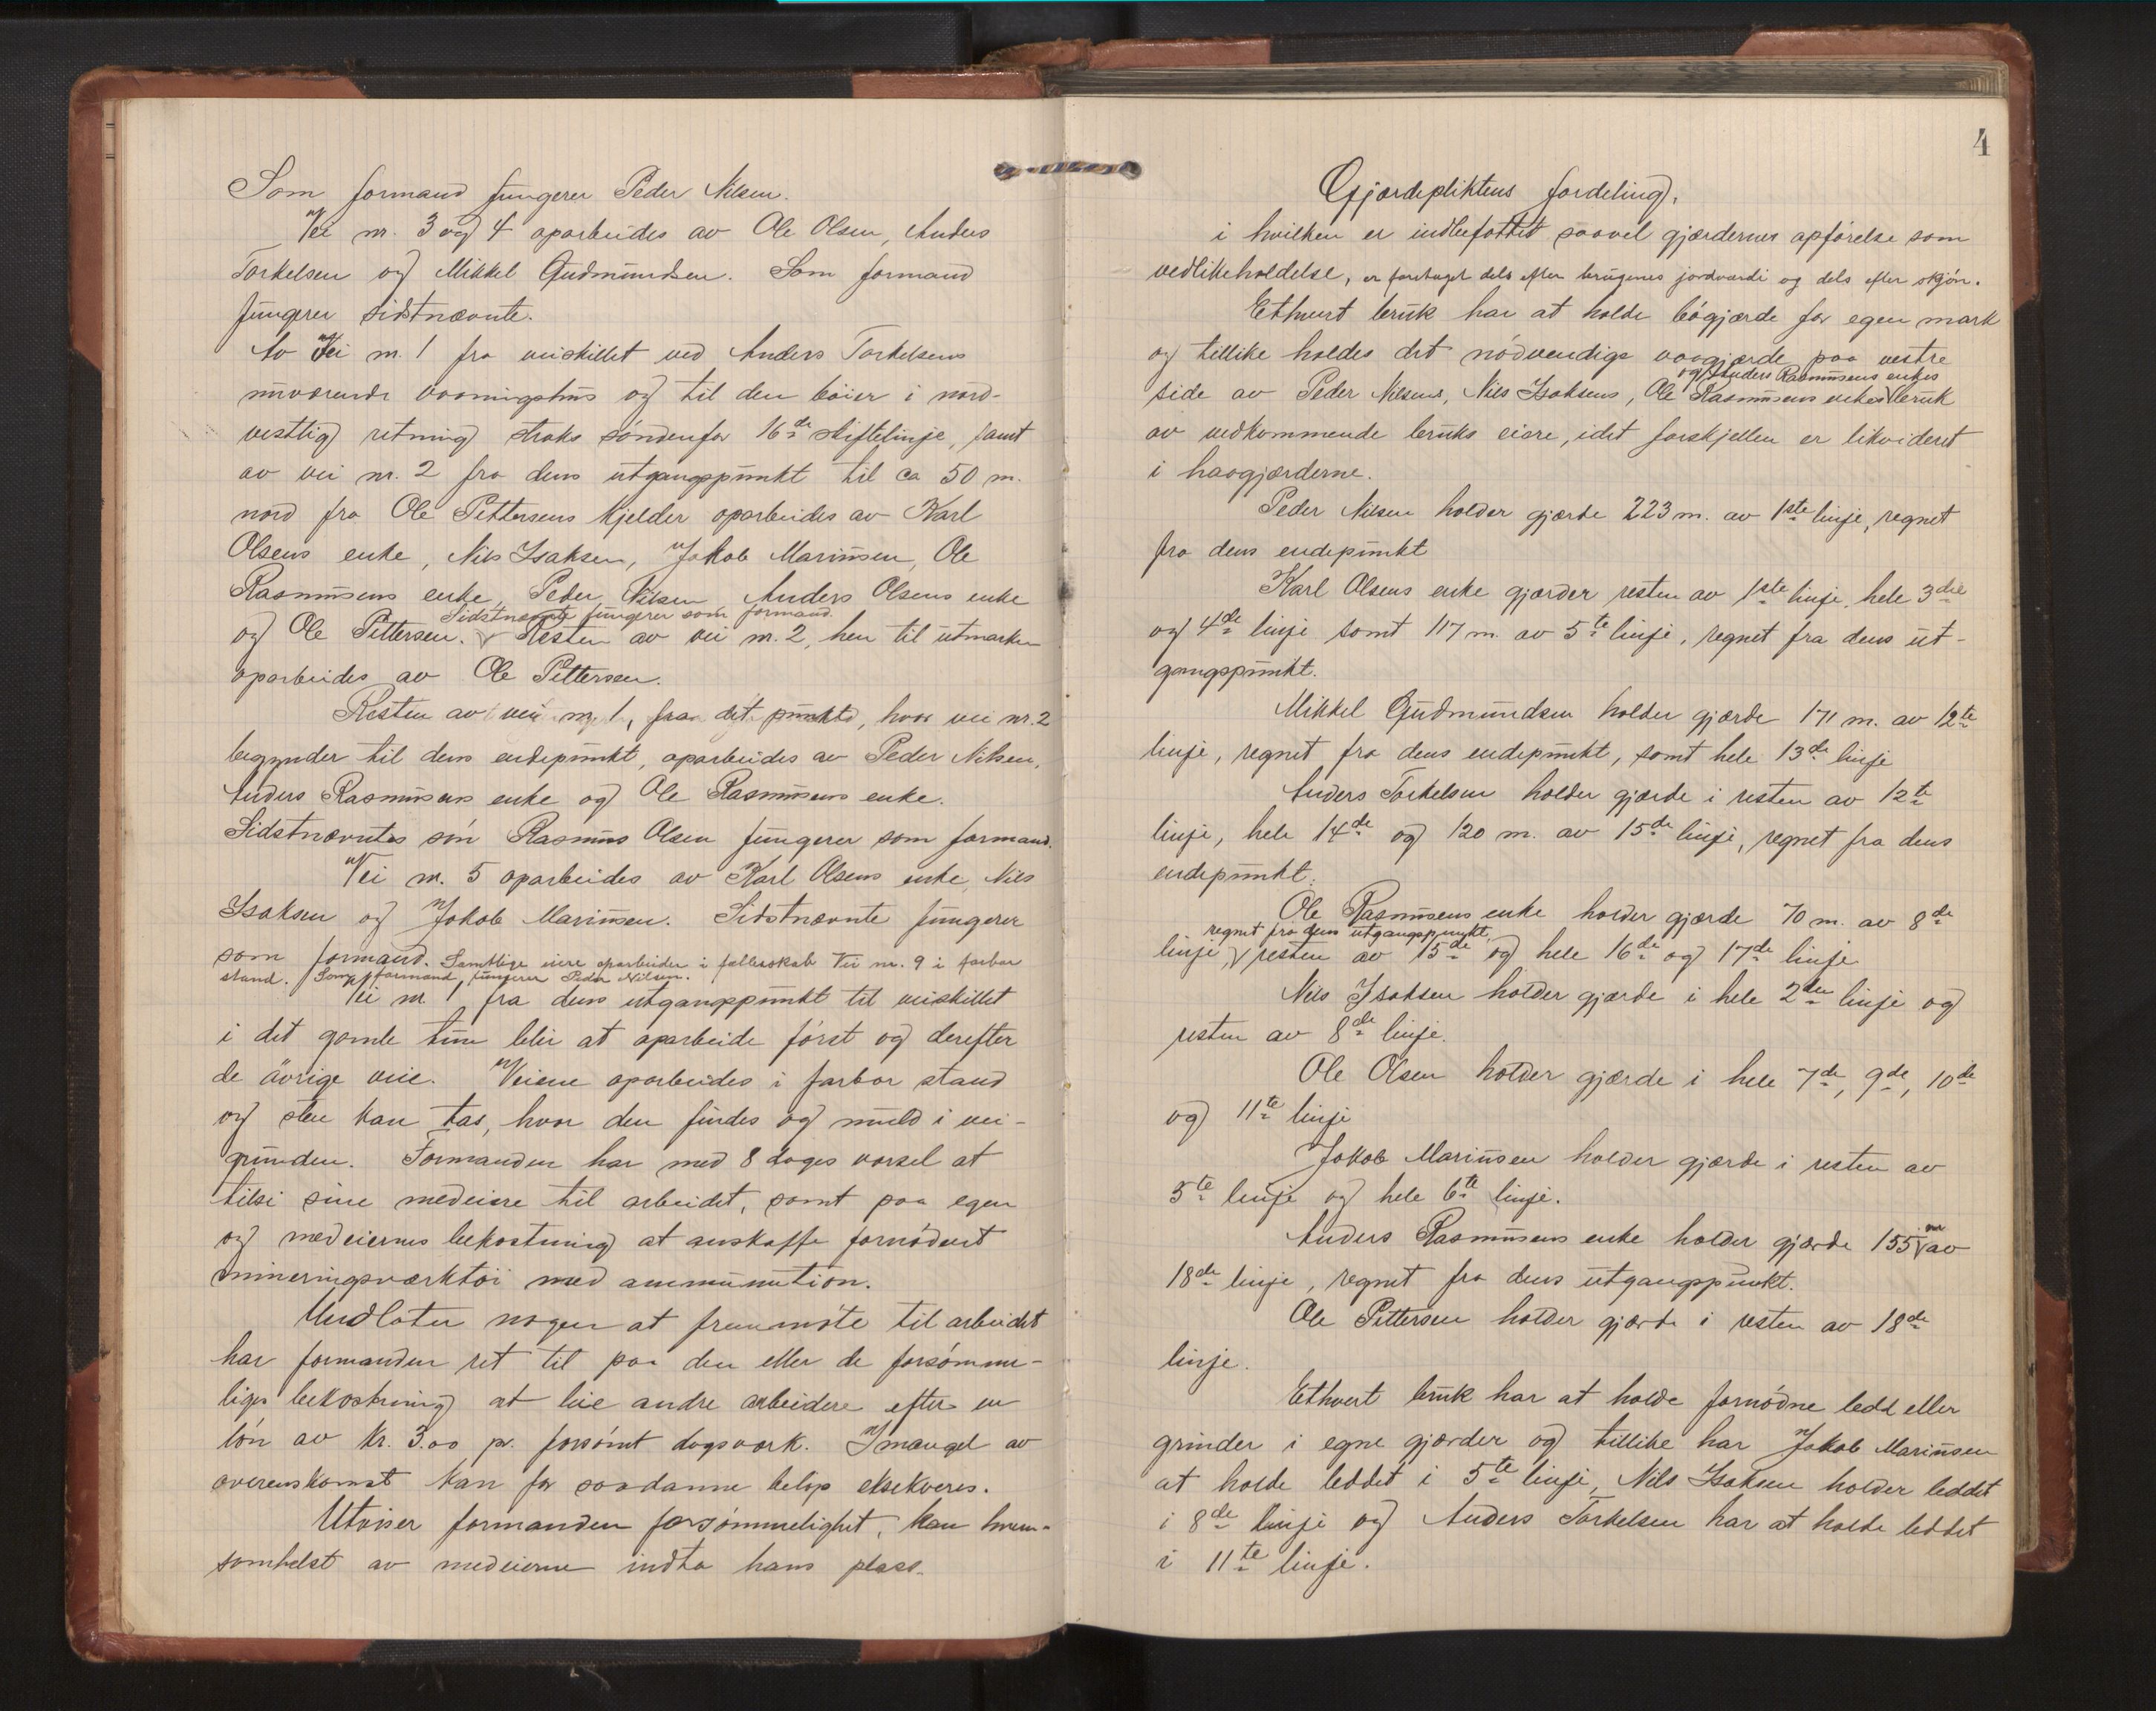 Som formand fungerer Peder Nilsen.
Vei nr. 3 og 4 oparbeides av Ole Olsen, Anders
Torkelsen og Mikkel Gudmundsen. Som formand
fungerer sidstnævnte.
Av Vei nr. 1 fra veiskillet ved Anders Torkelsens
nuværende vaaningshus og til den böier i nord-
vestlig retning straks söndenfor 16de skiftelinje, samt
av vei nr. 2 fra dens utgangspunkt til ca 50 m.
nord fra Ole Pettersens kjelder oparbeides av Karl
Olsens enke, Nils Isaksen, Jakob Mariusen, Ole
Rasmusens enke, Peder Nilsen Anders Olsens enke
Sidstnævnte fungerer som formand.
og Ole Pettersen. Resten av vei nr. 2, hen til utmarken
oparbeides av Ole Pettersen.
Resten av vei nr. 1, fra det punkt, hvor vei nr. 2
begynder til dens endepunkt, oparbeides av Peder Nilsen,
Anders Rasmusens enke og Ole Rasmusens enke.
Sidstnævntes sön Rasmus Olsen fungerer som formand.
Vei nr. 5 oparbeides av Karl Olsens enke, Nils
Isaksen og Jakob Mariusen. Sidstnævnte fungerer
som formand. Samtlige eiere oparbeider i fællesskab Vei nr. 9 i farbar
stand. Som formand fungerer Peder Nilsen.
Vei nr 1 fra dens utgangspunkt til veiskillet
i det gamle tun blir at oparbeide först og derefter
de övrige veie. Veiene oparbeides i farbar stand
og sten kan tas, hvor den findes og muld i vei-
grunden. Formanden har med 8 dages varsel at
tilsi sine medeiere til arbeidet, samt paa egen
og medeiernes bekostning at anskaffe fornödent
mineringsværktöi med ammunution.
Undlater nogen at fremmöte til arbeidet
har formanden ret til paa den eller de forsömme-
liges bekostning at leie andre arbeidere efter en
lön av kr. 3.00 pr. forsömt dagsverk. I mangel av
overenskomst kan for saadanne belöp eksekveres.
Utviser formanden forsömmelighet, kan hvem-
somhelst av medeierne indta hans plass.
4
Gjærdepliktens fordeling,
i hvilken er indbefattet saavel gjærdernes opförelse som
vedlikeholdelse, er foretaget dels efter brugenes jordværdi og dels efter skjön.
Ethvert bruk har at holde bögjærde for egen mark
og tillike holdes det nödvendige vaargjærde paa vestre
og Anders Rasmusens enkes
side av Peder Nilsens, Nils Isaksens, Ole Rasmusens enkes bruk
av vedkommende bruks eiere, idet forskjellen er likvideret
i havgjærderne.
Peder Nilsen holder gjærde 223 m. av 1ste linje, regnet
fra dens endepunkt
Karl Olsens enke gjærder resten av 1ste linje, hele 3die
og 4de linje samt 117 m. av 5te linje, regnet fra dens ut-
gangspunkt.
Mikkel Gudmundsen holder gjærde 171 m. av 12te
linje, regnet fra dens endepunkt, samt hele 13de linje
Anders Torkelsen holder gjærde i resten av 12te
linje, hele 14de og 120 m. av 15de linje, regnet fra dens
endepunkt.
Ole Rasmusens enke holder gjærde 70 m. av 8de
regnet fra dens utgangspunkt,
linje, resten av 15de og hele 16de og 17de linje
Nils Isaksen holder gjærde i hele 2den linje og
resten av 8de linje.
Ole Olsen holder gjærde i hele 7de, 9de, 10de
og 11te linje
Jakob Mariusen holder gjærde i resten av
5te linje og hele 6te linje.
Anders Rasmusens enke holder gjærde 155 m av
18de linje, regnet fra dens utgangspunkt.
Ole Pettersen holder gjærde i resten av 18de
linje.
Ethvert bruk har at holde fornödne ledd eller
grinder i egne gjærder og tillike har Jakob Mariusen
at holde leddet i 5te linje, Nils Isaksen holder leddet
i 8de linje og Anders Torkelsen har at holde leddet
i 11te linje.